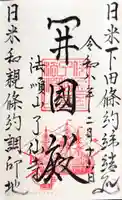 日米下田條約締結之
令和 年二月
開國殿
法順山了仙寺
日米和親條約調印地